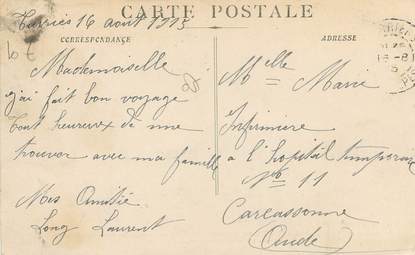 CARTE POSTALE
16 août 1915
CORRESPONDANCE
Mademoiselle
j'ai fait bon voyage
tout heureux de me
trouver avec ma famille
Mes Amitié
Long Laurent
ADRESSE
Melle Marie
Infirmiere
a l'hospital temporaire
No 11
Carcassonne
(Aude)